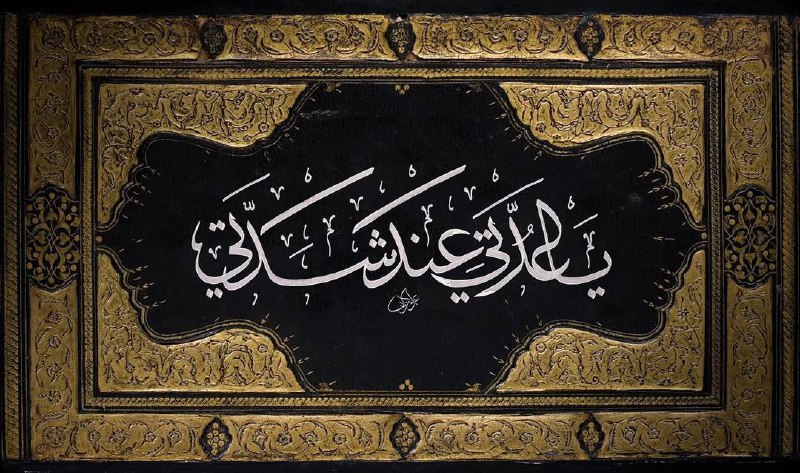 يَا عُدَّتي عِند شدَّتي